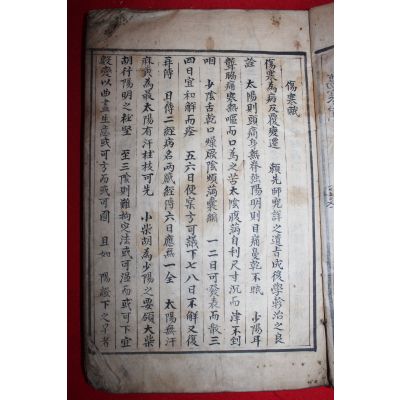 傷寒賦
傷寒為病反覆變遷 賴先師究詳之遺旨成後學診治之良
詮 太陽則頭痛身熱脊強陽明則目痛鼻乾不眠 少陽耳
聾脇痛寒熱嘔而口為之苦太陰腹滿自利尺寸沉而津不到
咽 少陰舌乾口燥厥陰煩滿囊縮 一二日可發表而散三
四日宜和解而痊 五六日便實方可議下七八日不解又復
再傳 日傳二經病名兩感經傳六日應無一全 太陽無汗
麻黃為最太陽有汗桂枝可先 小柴胡為少陽之要領大柴
胡行陽明之秘堅 至三陰則難拘定法或可溫而或可下宜
數變以曲盡生意或可方而或可圓 且如 陽證下之早者